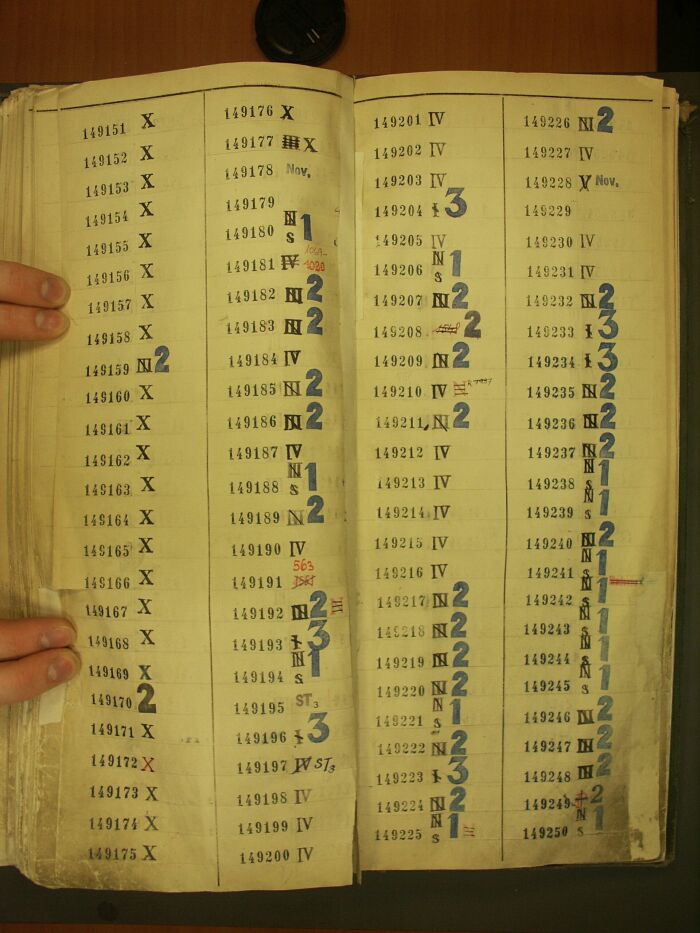 149151 X
149152 X
149153 X
149154 X
149155 X
149156 X
149157 X
149158 X
149159 2
149160 X
149161 X
149162 X
149163 X
149164 X
149165 X
149166 X
149167 X
149168 X
149169 X
149170 2
149171 X
149172 X
149173 X
149174 X
149175 X
149176 X
149177 X
149178 Nov.
149179
149180 N S 1
149181 IV 1020
149182 2
149183 2
149184 IV
149185 2
149186 2
149187 IV
149188 N S 1
149189 2
149190 IV
149191 563
149192 2 III
149193 I 3
149194 N S 1
149195 ST3
149196 I 3
149197 IV ST3
149198 IV
149199 IV
149200 IV
149201 IV
149202 IV
149203 IV
149204 I 3
149205 IV
149206 N S 1
149207 2
149208 2
149209 2
149210 IV III
149211 2
149212 IV
149213 IV
149214 IV
149215 IV
149216 IV
149217 2
149218 2
149219 2
149220 2
149221 N S 1
149222 2
149223 I 3
149224 2
149225 N S 1 III
149226 2
149227 IV
149228 V Nov.
149229
149230 IV
149231 IV
149232 2
149233 I 3
149234 I 3
149235 2
149236 2
149237 2
149238 N S 1
149239 N S 1
149240 2
149241 N S 1
149242 N S 1
149243 N S 1
149244 N S 1
149245 N S 1
149246 2
149247 2
149248 2
149249 2
149250 N S 1